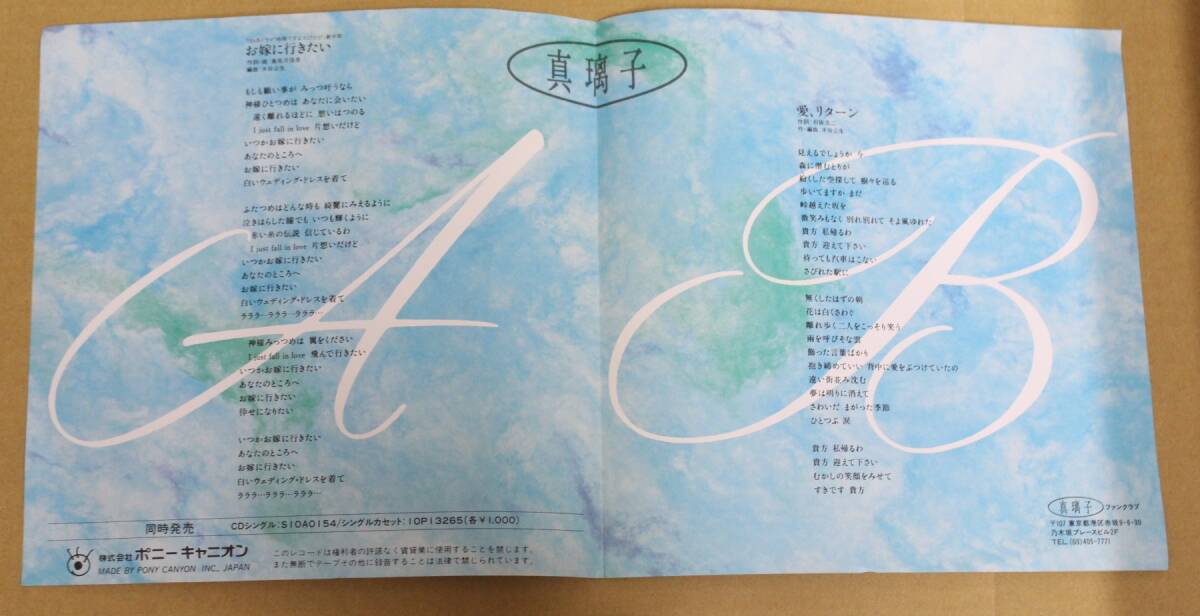 お嫁に行きたい
もしも願い事が みっつ叶うなら
神様ひとつめは あなたに会いたい
遠く離れるほどに 想いはつのる
I just fall in love 片想いだけど
いつかお嫁に行きたい
あなたのところへ
お嫁に行きたい
白いウェディング・ドレスを着て
ふたつめはどんな時も 綺麗にみえるように
泣きはらした瞳でも いつも輝くように
赤い糸の伝説 信じているわ
I just fall in love 片想いだけど
いつかお嫁に行きたい
あなたのところへ
お嫁に行きたい
白いウェディング・ドレスを着て
ラララ…ラララ…ラララ…
神様みっつめは 翼をください
I just fall in love 飛んで行きたい
いつかお嫁に行きたい
あなたのところへ
お嫁に行きたい
倖せになりたい
いつかお嫁に行きたい
あなたのところへ
お嫁に行きたい
白いウェディング・ドレスを着て
ラララ…ラララ…ラララ…
A
真璃子
愛、リターン
見えるでしょうか 今
森に棲むとりが
失くした空探して 樹々を巡る
歩いてますか まだ
峠越えた坂を
微笑みもなく 別れ別れて そよ風ゆれた
貴方 私帰るわ
貴方 迎えて下さい
待っても汽車はこない
さびれた駅に
無くしたはずの朝
花は白くさわぐ
離れ歩く二人をこっそり笑う
雨を呼びそな雲
飾った言葉ばかり
抱き締めていい 背中に愛をぶつけていたの
遠い街並み沈む
夢は明りに消えて
さわいだ まがった季節
ひとつぶ 涙
貴方 私帰るわ
貴方 迎えて下さい
むかしの笑顔をみせて
すきです 貴方
B
同時発売 CDシングル:S10A0154/シングルカセット:10P13265(各¥1,000)
株式会社ポニーキャニオン
MADE BY PONY CANYON INC., JAPAN
このレコードは権利者の許諾なく賃貸業に使用することを禁じます。
また無断でテープその他に録音することは法律で禁じられています。
真璃子 ファンクラブ
〒107 東京都港区赤坂9-6-30
乃木坂プレースビル2F
TEL.(03)405-7771